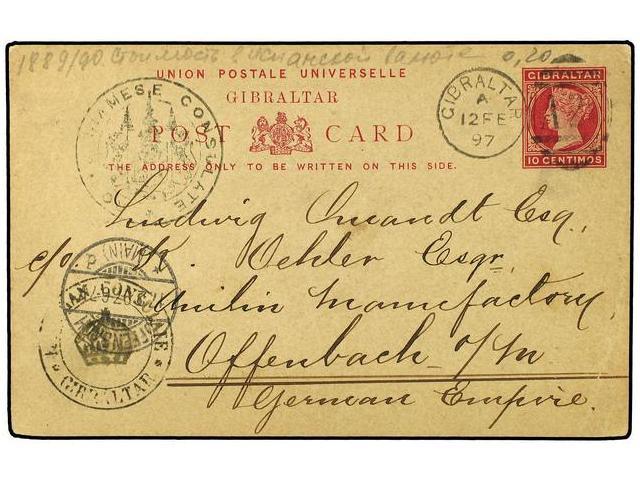 1889/90 Стоимость в испанской валюте 0,20
UNION POSTALE UNIVERSELLE
GIBRALTAR
POST CARD
THE ADDRESS ONLY TO BE WRITTEN ON THIS SIDE.
GIBRALTAR
10 CENTIMOS
GIBRALTAR
A
12 FE
97
SIAMESE CONSULATE
Ludwig Esq.,
c/o K. Oehler Esqr
Anilin Manufactory
Offenbach o/m
German Empire.
(MAIN)
GIBRALTAR